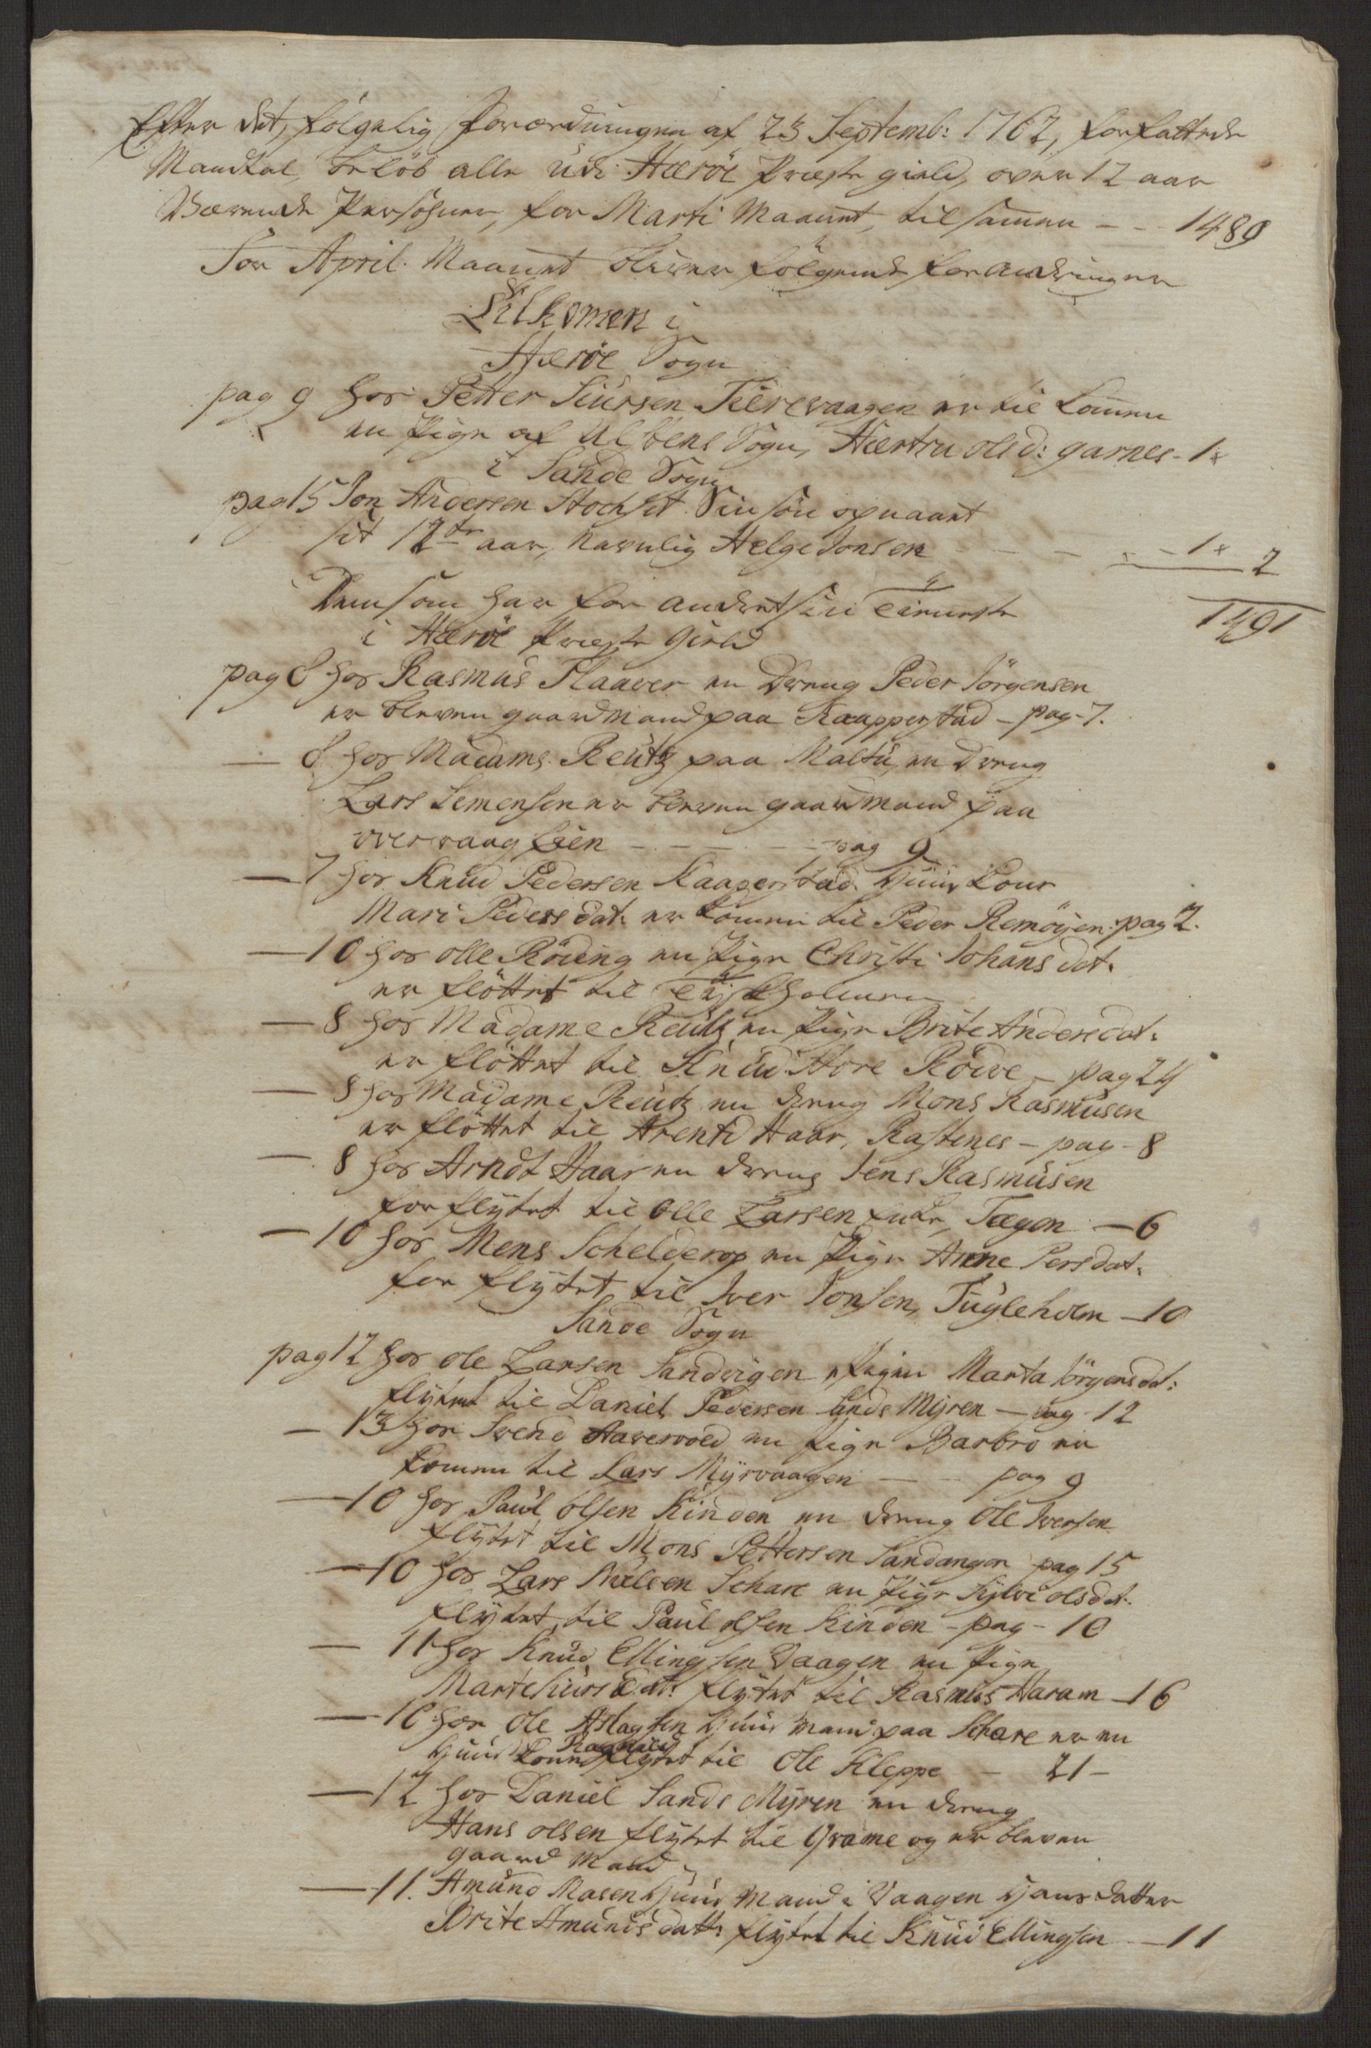 Efter det, følgelig forordningen af 23 Septemb: 1762, forfattede
Mandtal, beløb alle udi Herøe Præste gield, over 12 aar
Værende Persohner, for Marti Maanet, tilsamen - - 1489
For April Maanet bliver følgende forandringer
Tilkomen i
Herøe Sogn
pag 9 hos Petter Siursen Tiervaagen er til komen
en Pige af Ulsens Sogn, Olsd: garnes - 1
i Sande Sogn
pag 15 Jon Andersen Stochset Sin søn opnaaet
sit 12te aar, navnlig Helge Jonsen - - - 1 2
1491
Dem som har forandret sin Tieneste
i Herøe Præste Gield
pag 8 hos Rasmus Flaaver en Dreng Peder Jörgensen
er bleven gaardmand paa - pag - 7.
— 8 hos Madame Reutz paa Maltu, en Dreng
Lars Semensen er bleven gaardmand paa
overvaag - - - pag 9
— 7 hos Knud Pedersen Huus kone
Mari Peders dat: er komen til Peder Remöyen - pag 2.
— 10 hos olle Röding en Pige Christi Johans dat:
er flöttet til
— 8 hos Madame Reutz en Pige Brite Anders dat:
er flöttet til Knud Hove - pag 24
— 8 hos Madame Reutz en dreng Mons Rasmusen
er flöttet til Arent Haar, - pag - 8
— 8 hos Arndt Haar en dreng Jens Rasmusen
forflytet til Olle Larsen - 6
— 10 hos Mens Schelderop en Pige Anne Persdat:
for flytet til Iver Jonsen, Fugleholm - 10
Sande Sogn
pag 12 hos ole Larsen Sandvigen Pigen Marta Jörgensdat:
flytet til Daniel Pedersen Sands Myren - pag 12
— 13 hos Svend en Pige Barbro er
komen til Lars Myrvaagen - - pag 9
— 10 hos Paul olsen Kinden en dreng Ole Iversen
flytet til Mons Pettersen Sandanger pag 15
— 10 hos Lars Nielsen Schare en Pige Sylvi olsdat:
flytet til Paul olsen Kinden - pag - 10
— 11 hos Knud Ellingsen Vaagen en Pige
Marte flytet til Rasmus Haram - 16
— 10 hos Ole Aslagsen Huus mand paa Schare er en
Huus kone Ragnild flytet til Ole Kleppe - 21 -
— 12 hos Daniel Sands Myren en dreng
Hans olsen flytet til Grame og er bleven
gaard mand
— 11. Amund Masen Huus mand i Vaagen Hans datter
Brite Amunds datt: flytet til Knud Ellingsen - 11